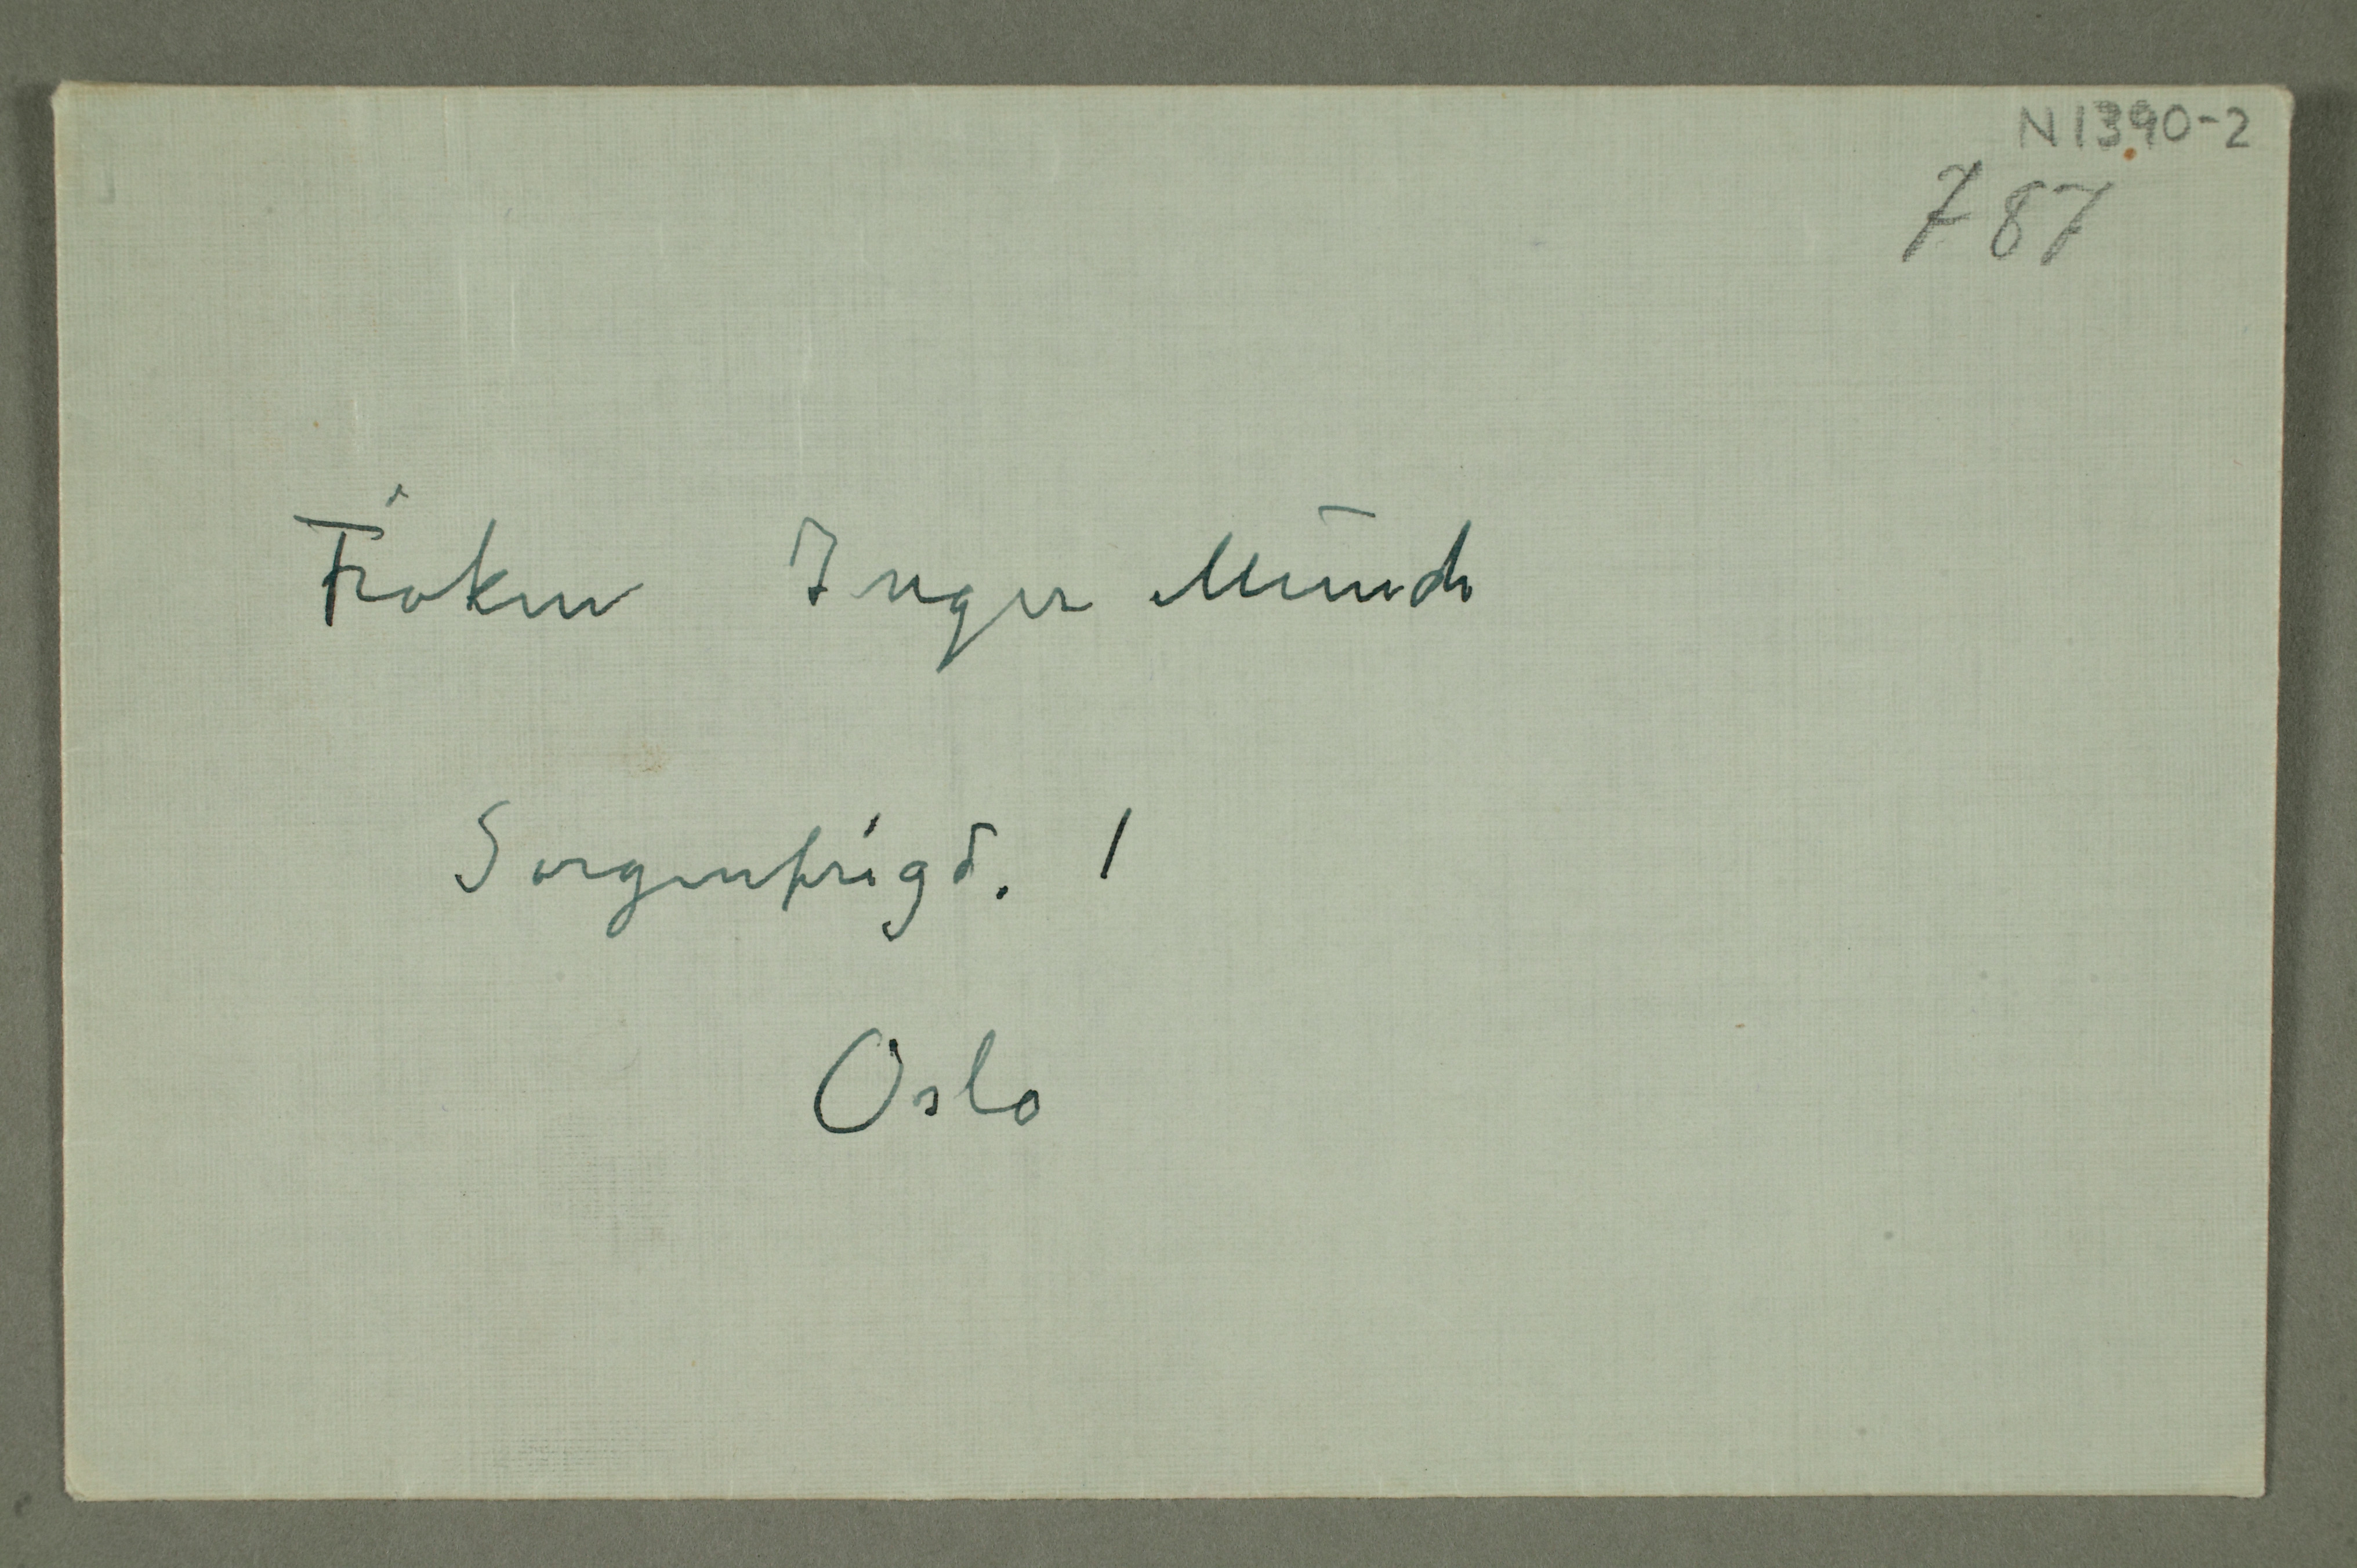 N1390-2
787
Frøken Inger Munch
Sorgenfrigd. 1
Oslo